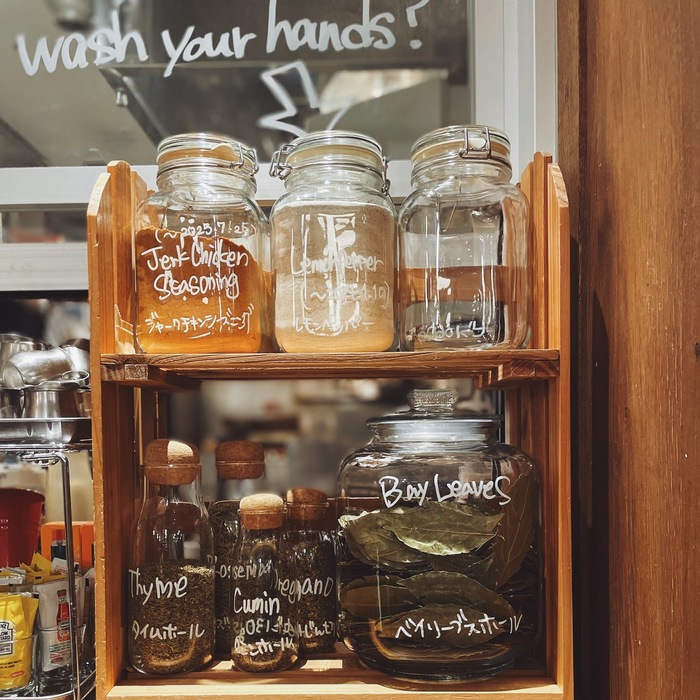 wash your hands?
(〜2023.7.25)
Jerk Chicken
Seasoning
ジャークチキンシーズニング
Lemon Pepper
レモンペッパー
Bay Leaves
ベイリーブスホール
Thyme
タイムホール
Cumin
Oregano